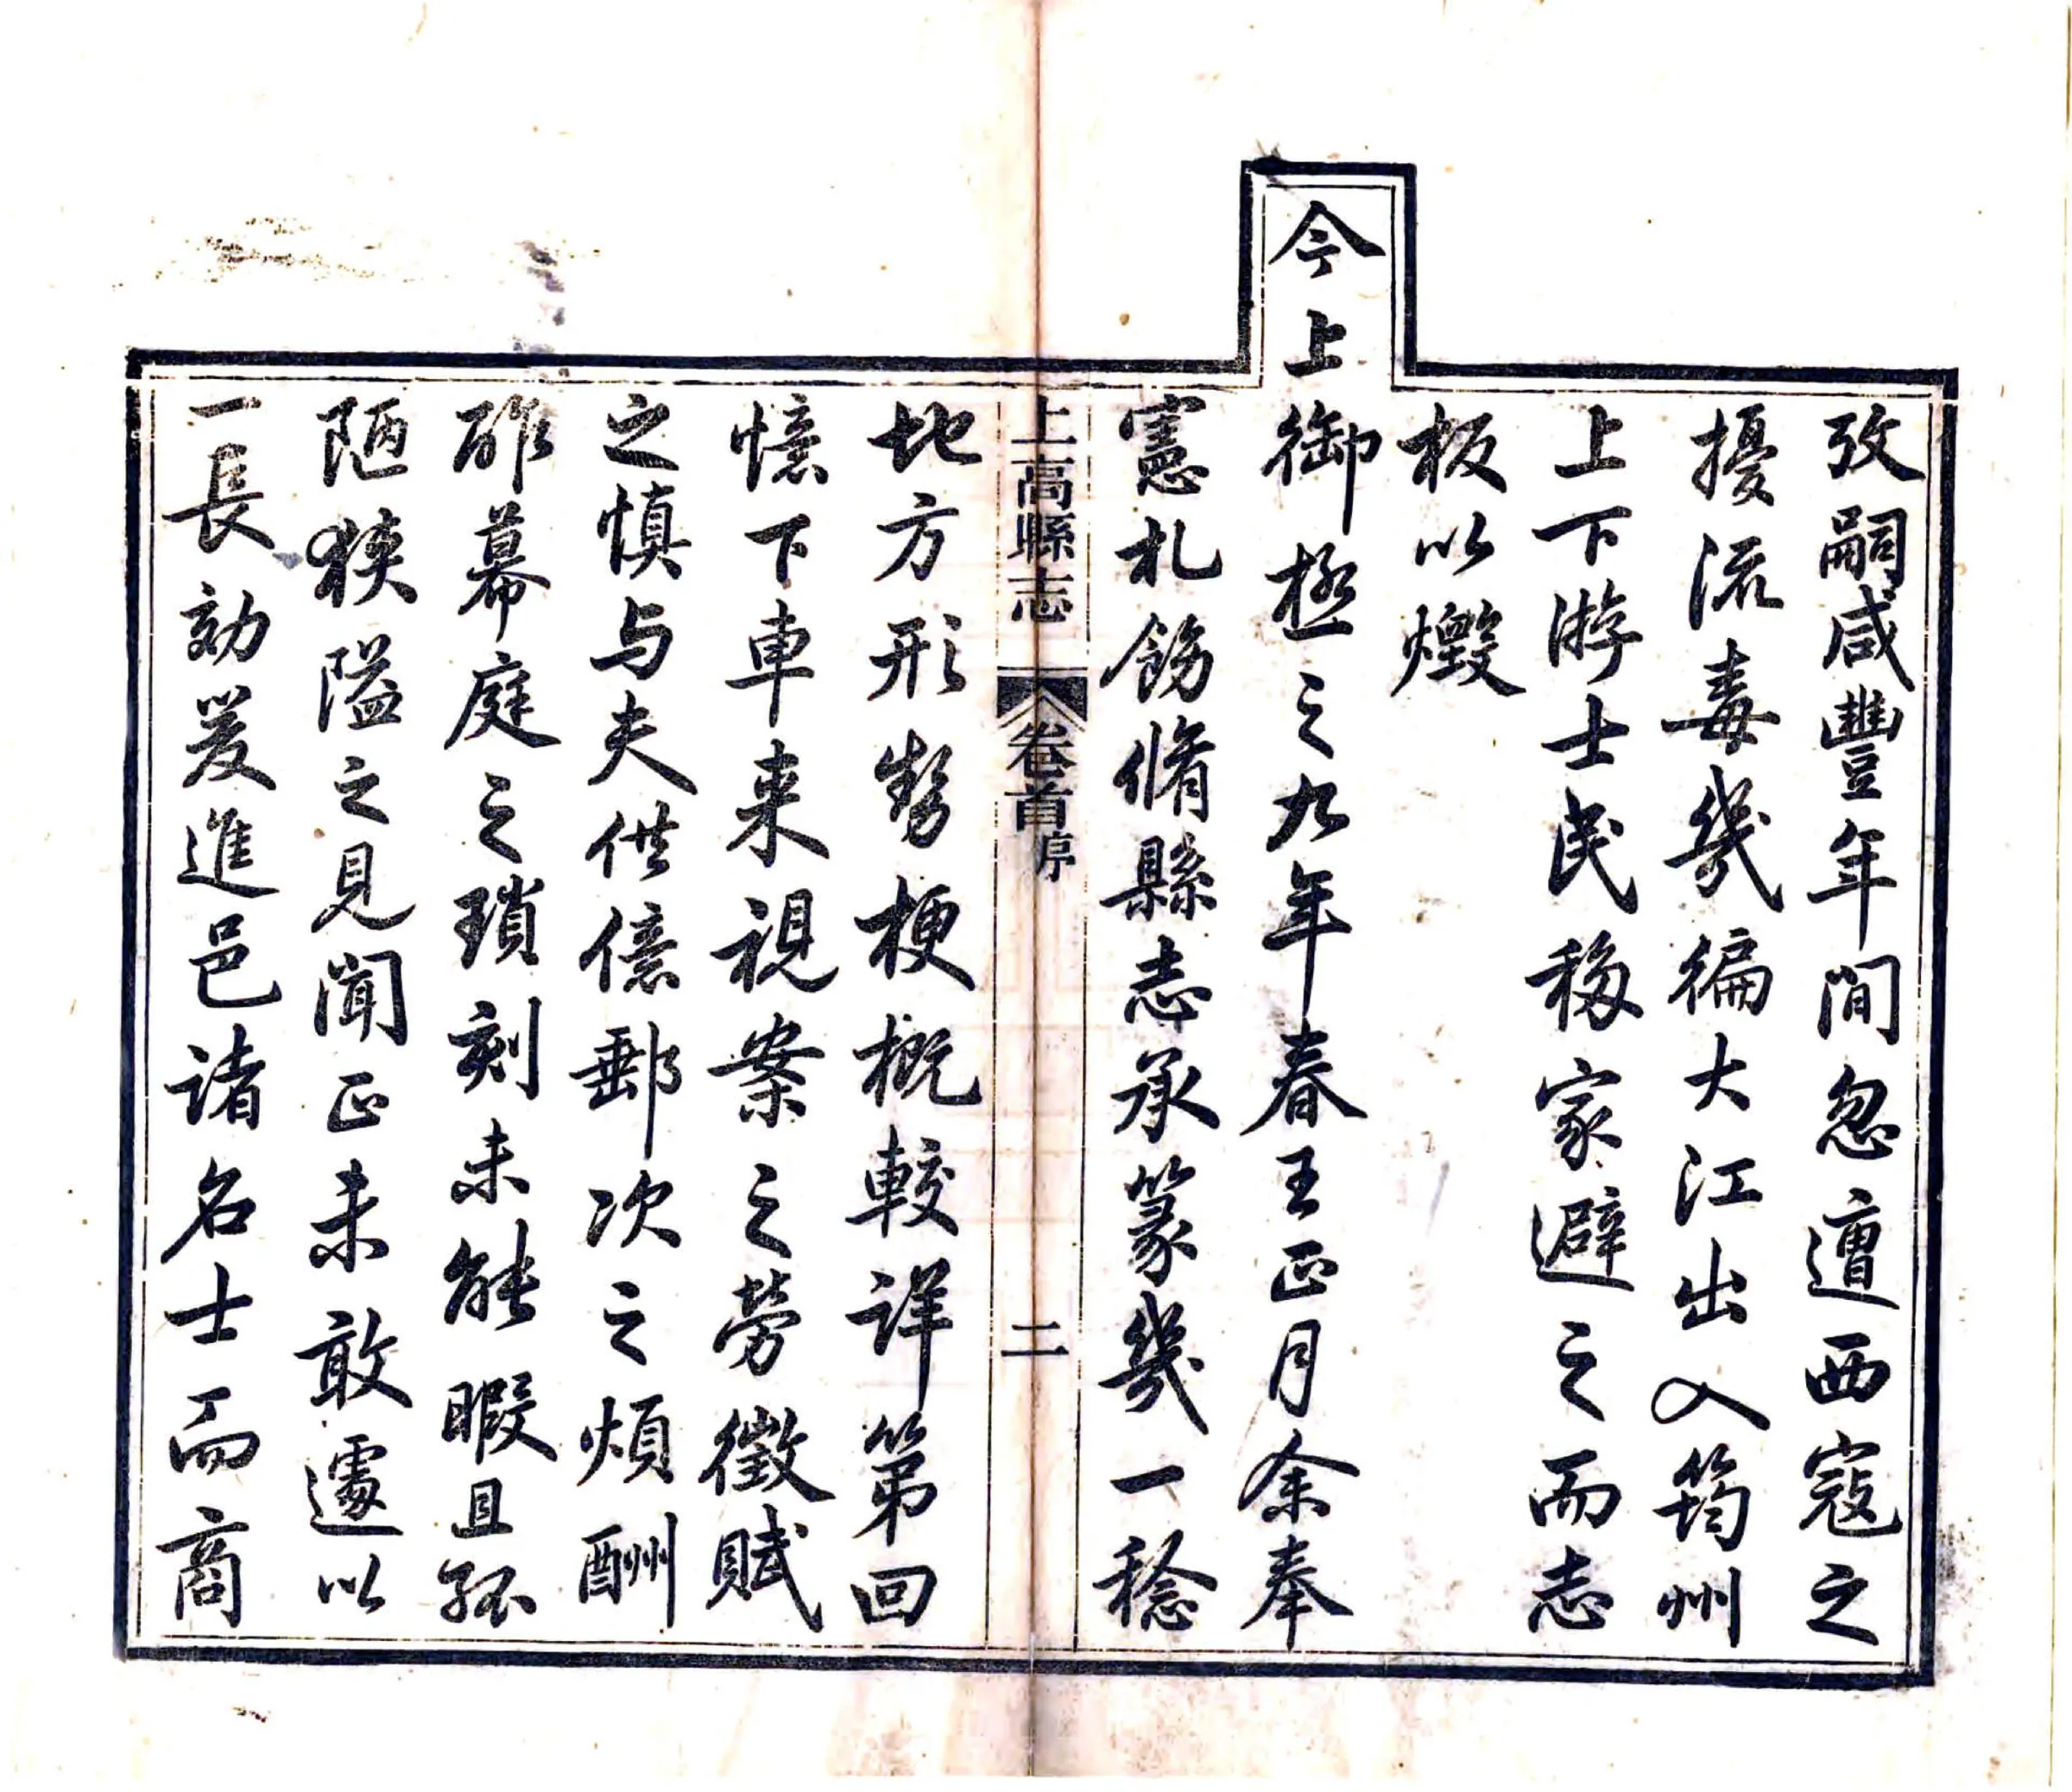 攷嗣咸豐年間忽遭西寇之
擾流毒幾徧大江出入筠州
上下游士民移家避之而志
板以燬
今上御極之九年春王正月余奉
憲札飭脩縣志承篆幾一稔
上高縣志 卷首 序 二
地方形勢梗概較詳第回
憶下車来視案之勞徵賦
之慎与夫供億郵次之煩酬
酢幕庭之瑣刻未能暇且孤
陋狹隘之見聞正未敢遽以
一長効爰進邑諸名士而商